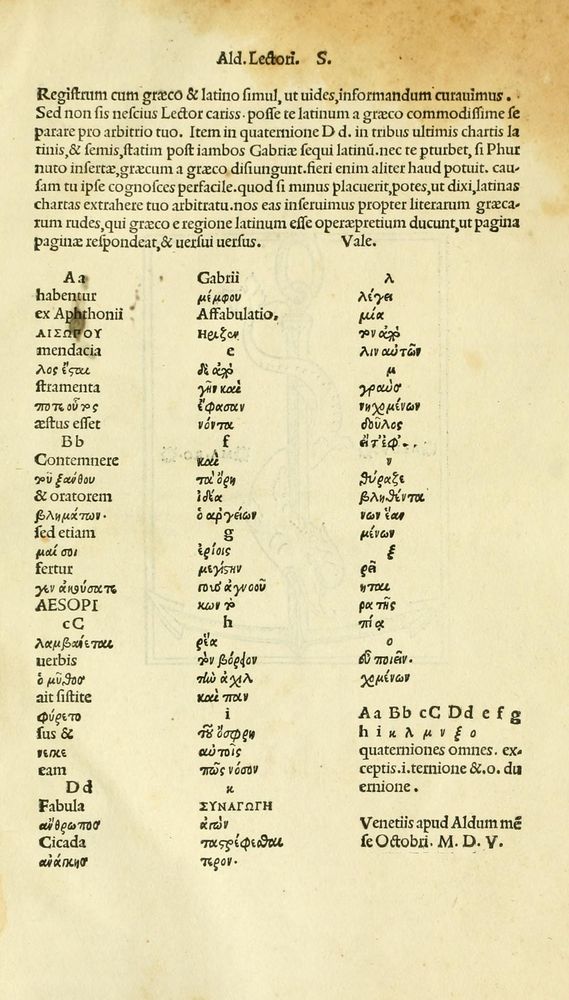 Ald. Lectori. S.
Registrum cum græco & latino simul, ut uides, informandum curauimus.
Sed non sis nescius Lector cariss. posse te latinum a græco commodissime se
parare pro arbitrio tuo. Item in quaternione D d. in tribus ultimis chartis la
tinis, & semis, statim post iambos Gabriæ sequi latinũ. nec te pturbet, si Phur
nuto insertæ, græcum a græco disiungunt. fieri enim aliter haud potuit. cau-
sam tu ipse cognosces perfacile. quod si minus placuerit, potes, ut dixi, latinas
chartas extrahere tuo arbitratu. nos eas inseruimus propter literarum græca-
rum rudes, qui græco e regione latinum esse operæpretium ducunt, ut pagina
paginæ respondeat, & uersui uersus. Vale.
A a
habentur
ex Aphthonii
ΑΙΣΩΠΟΥ
mendacia
λος ἔσται
stramenta
ποτε οὗτος
æstus esset
B b
Contemnere
τοῦ ξανθου
& oratorem
βλημάτων.
sed etiam
μαί σοι
fertur
AESOPI
c C
λαμβάνεται
uerbis
ὁ μῦθος
ait sistite
φύρετο
sus &
eam
D d
Fabula
ἄνθρωπος
Cicada
Gabrii
μέμφου
Affabulatio.
Ηριζον
e
δὲ ἀλώ
γῆν καὶ
ἔφασαν
νόντα
f
καὶ
τὰ ὄρη
ἰδέα
ὁ ἀργείων
g
ἐρίοις
μεγίστην
h
ῥέα
τὸν βόρβον
καὶ παν
i
αὐτοῖς
πῶς νόσον
κ
ΣΥΝΑΓΩΓΗ
τερον.
λ
λέγει
μία
λιν αὐτῶν
μ
γραῦς
νηχομένων
δοῦλος
ν
θύραζε
βληθέντα
νων ἐαν
μένων
ξ
ρεῖ
ηται
ρα τῆς
πία
ο
οῦ ποιεῖν.
χομένων
A a B b c C D d e f g
h i κ λ μ ν ξ ο
quaterniones omnes. ex-
ceptis. i. ternione &. o. du
ernione.
Venetiis apud Aldum mẽ
se Octobri. M. D. V.